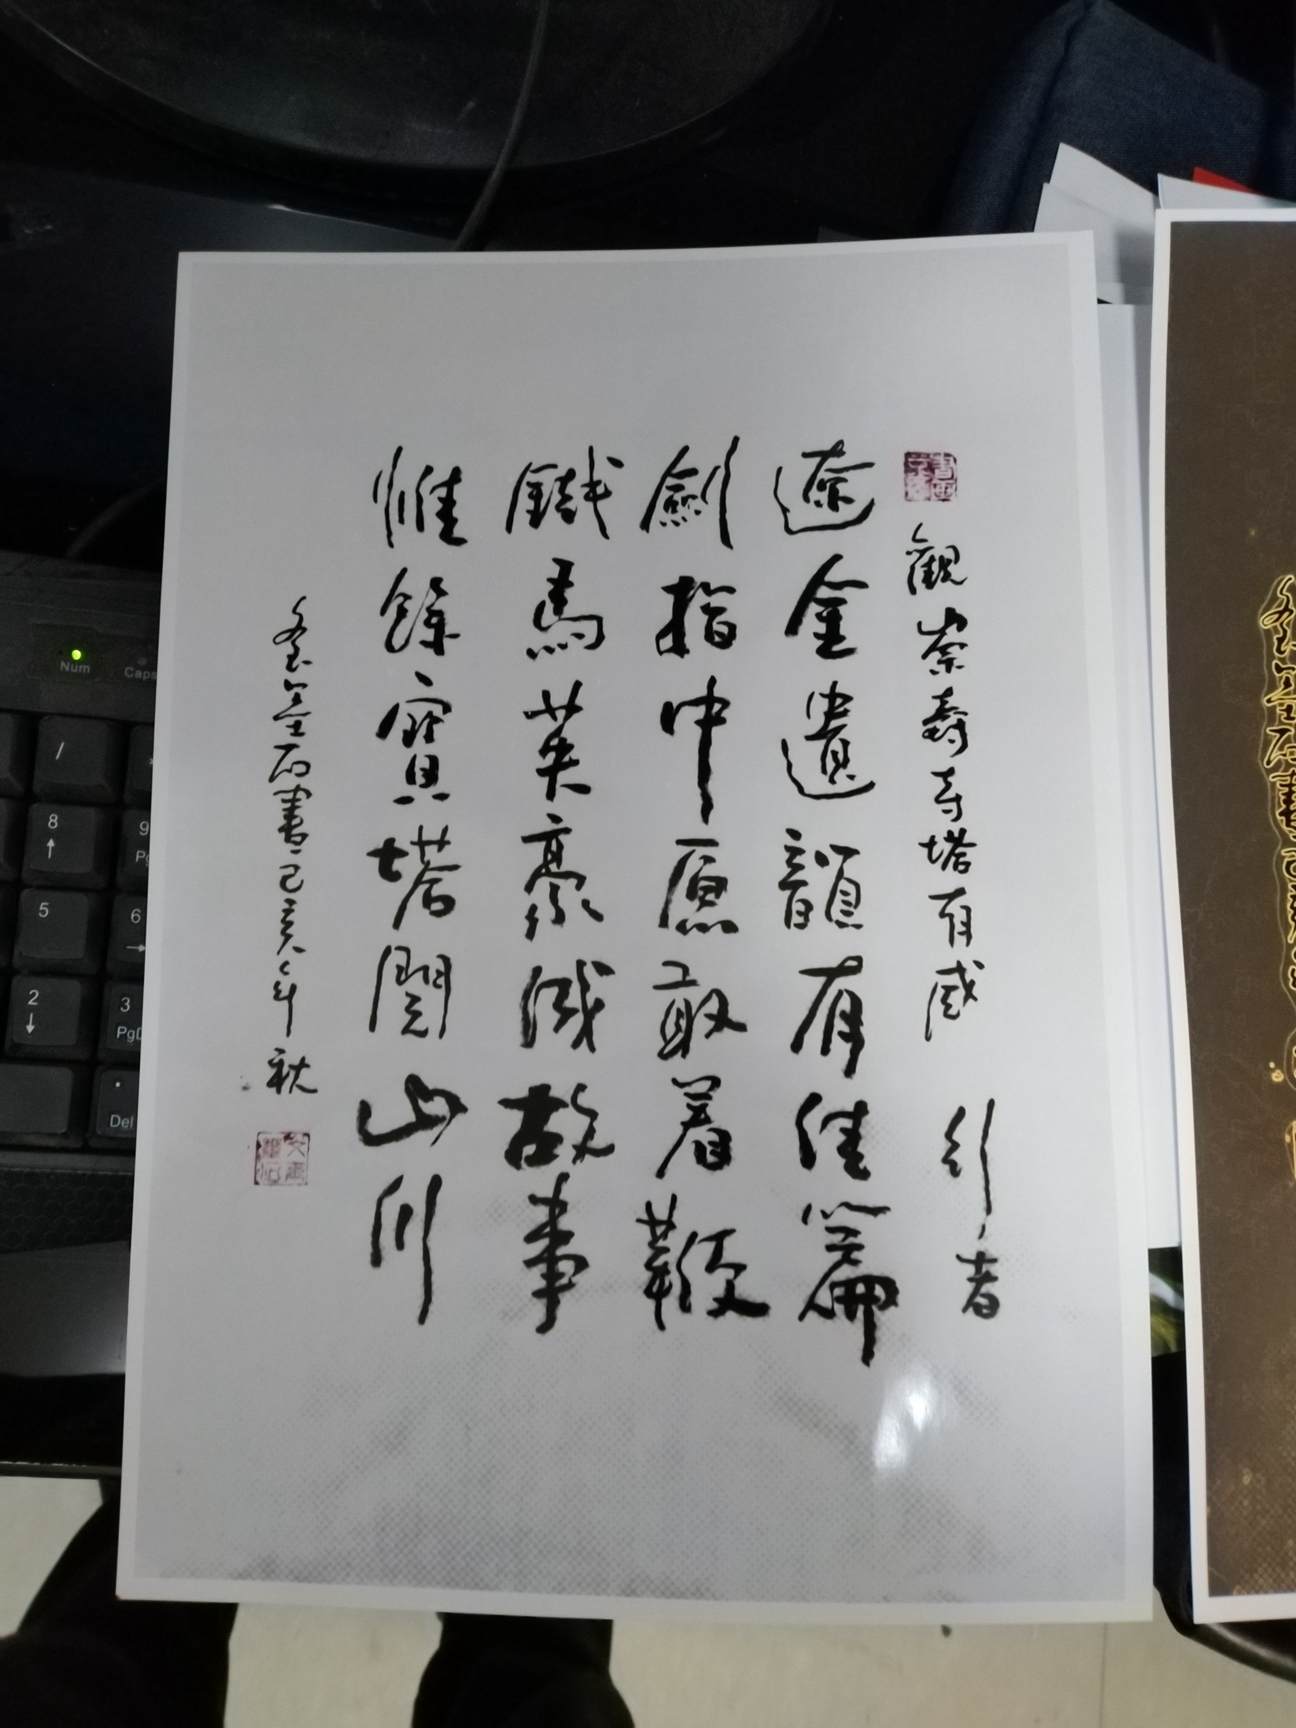 觀崇壽寺塔有感
引者
遼金遺韻有佳篇
劍指中原敢着鞭
鐵馬英豪成故事
惟餘寶塔閱山川
書己亥年秋
Num
Caps
/
8
9
5
6
2
3
Del